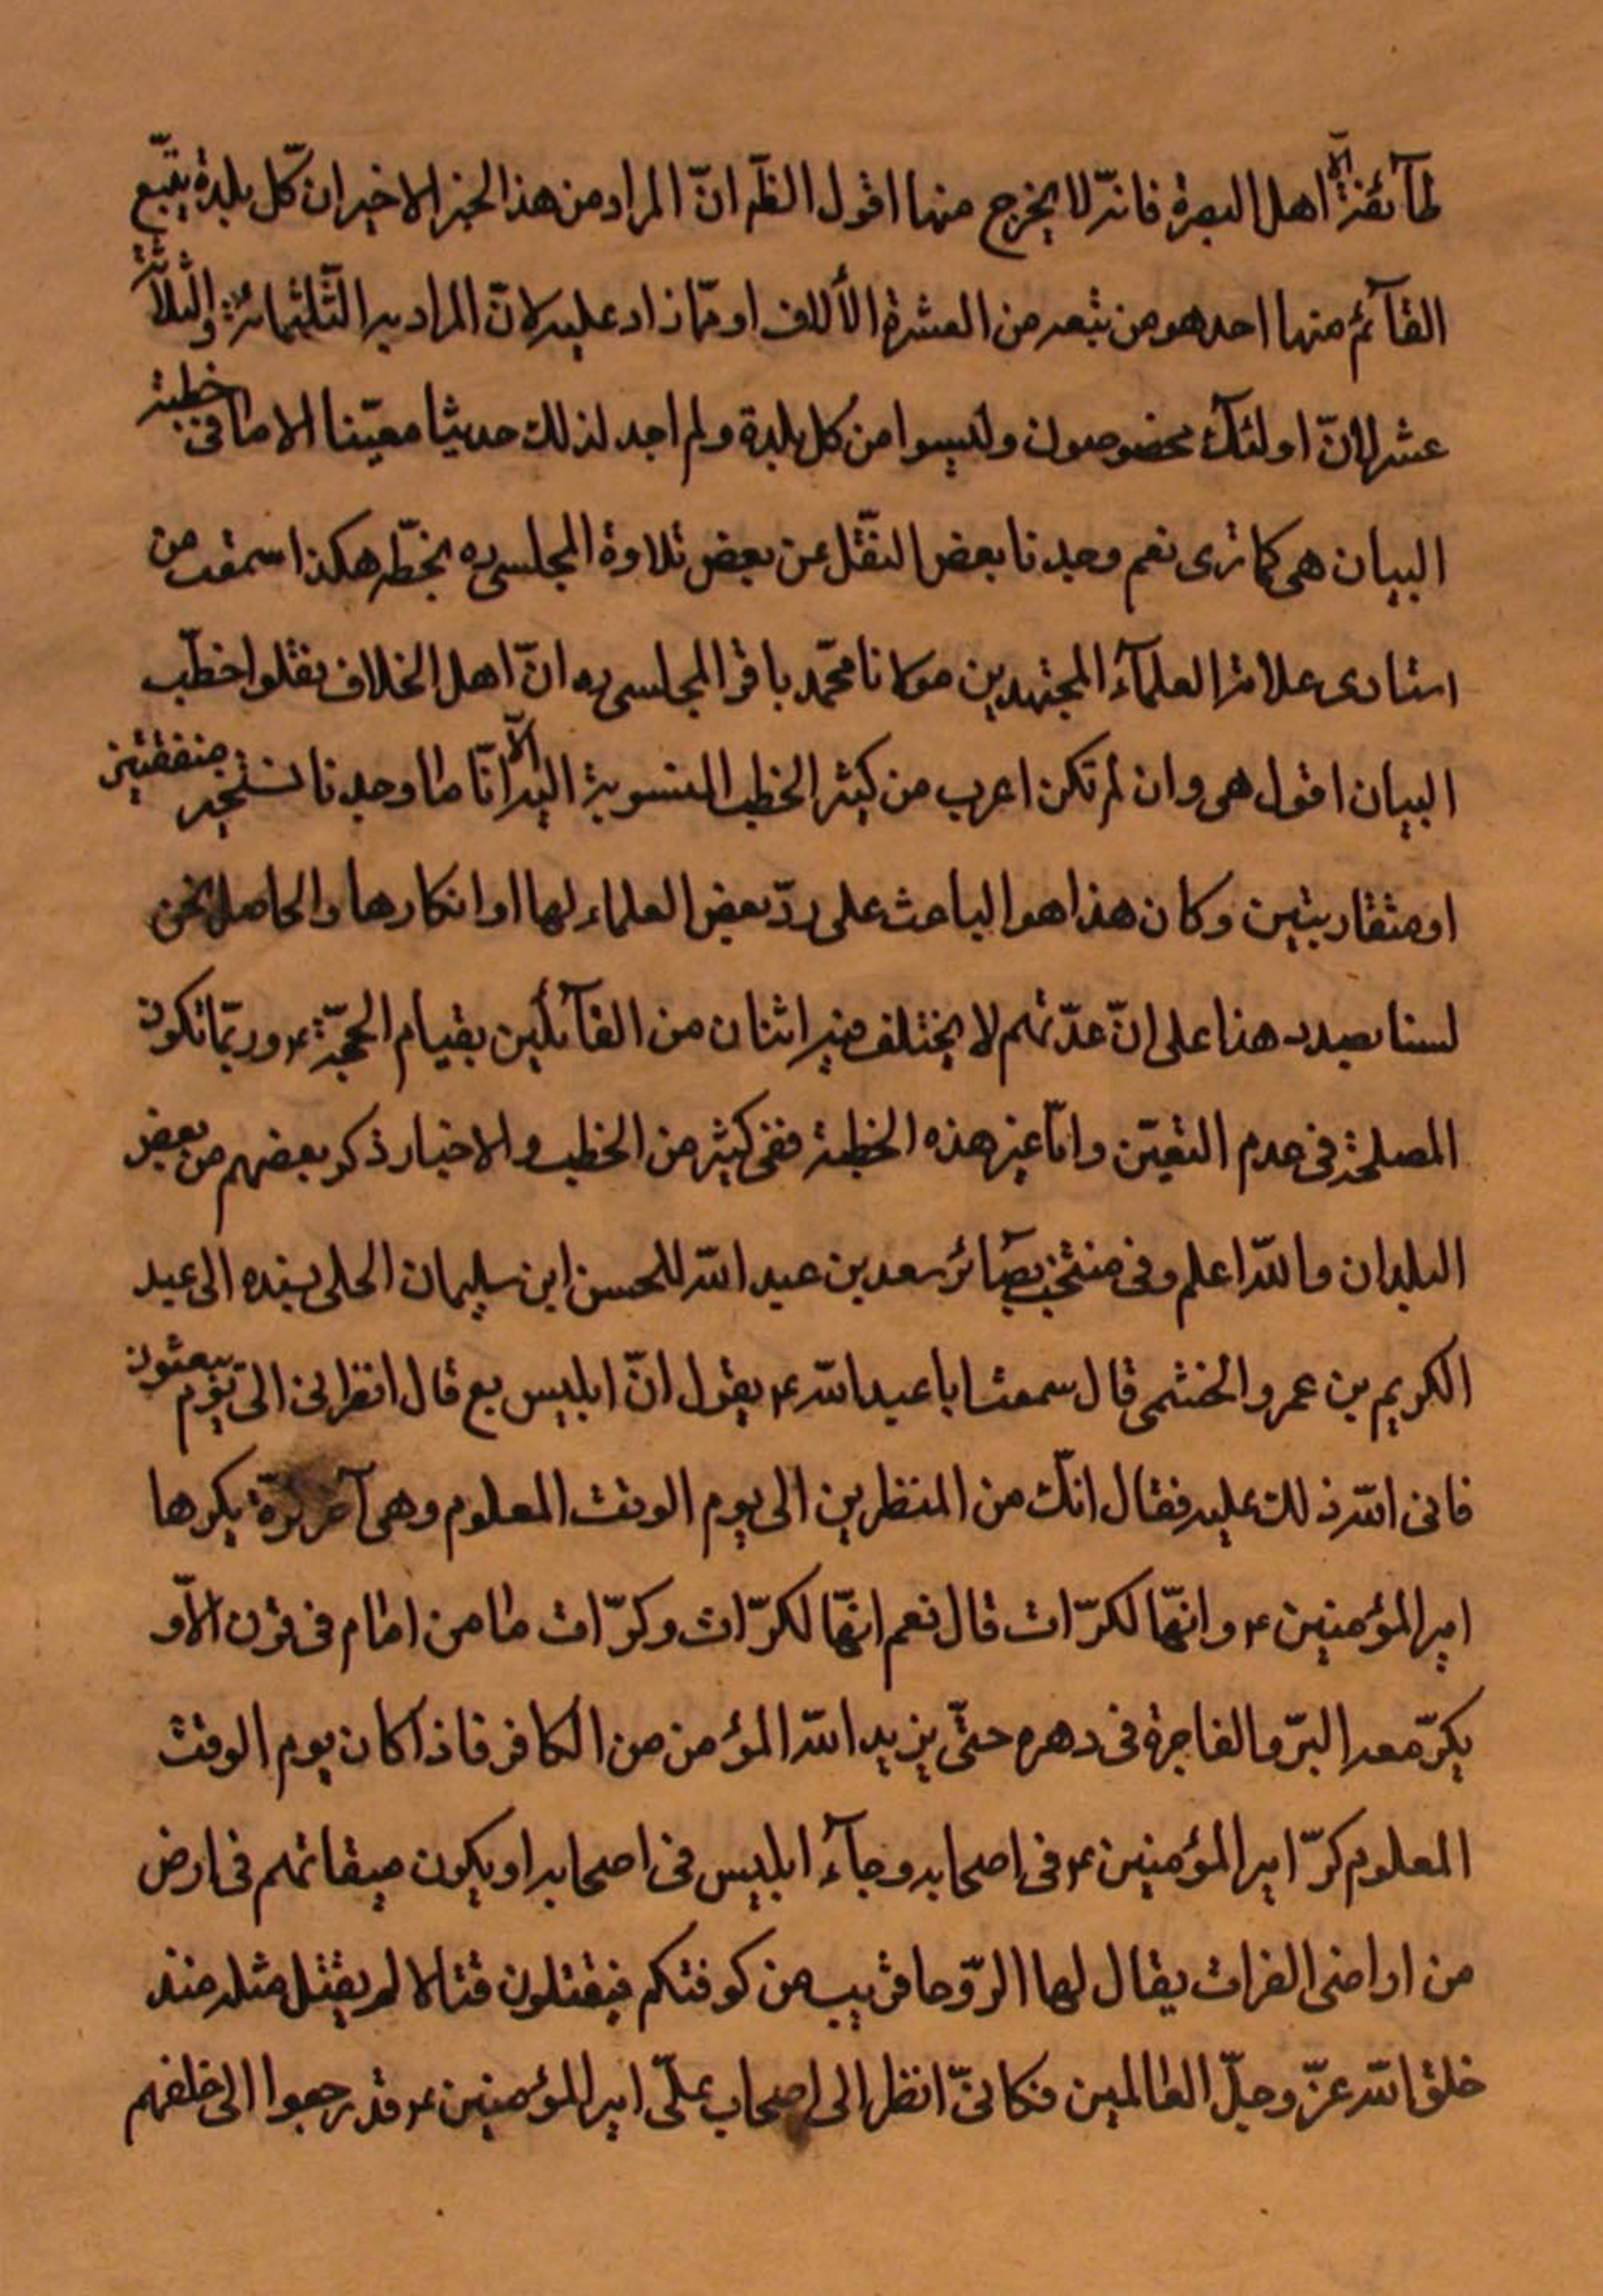 طآئفة الّا اهل البصرة فانّه لا يخرج منها اقول الظّه انّ المراد من هذا الخبر الاخير ان كلّ بلدة يتّبع
القآئم منها احد هو من تبعه من العشرة الألاف او ممّا زاد عليه لانّ المراد به الثّلثمائة والثّلاثة
عشر لانّ اولئك مخصوصون وليسوا من كل بلدة ولم اجد لذلك حديثا معيّنا الا ما فى خطبة
البيان هى كما ترى نعم وجدنا بعض النقّل عن بعض تلاوة المجلسى ره بخطّه هكذا سمعت من
استادى علامة العلمآء المجتهدين مولانا محمّد باقر المجلسى ره انّ اهل الخلاف نقلوا خطب
البيان اقول هى وان لم تكن اعرب من كثير الخطب المنسوبة اليه الّا انّا ما وجدنا نسختين متفقتين
او متقاربتين وكان هذا هو الباعث على ردّ بعض العلماء لها او انكارها والحاصل نحن
لسنا بصدد هذا على انّ عدّتهم لا يختلف فيه اثنان من القآئلين بقيام الحجّة ع وربّما تكون
المصلحة فى عدم التعيّن وامّا غير هذه الخطبة ففى كثير من الخطب والاخبار ذكر بعضهم من بعض
البلدان والله اعلم وفى منتخب بصآئر سعد بن عبد الله للحسن ابن سليمان الحلى بسنده الى عبد
الكريم بن عمرو الخثمى قال سمعت ابا عبد الله ع يقول انّ ابليس بع قال انظرنى الى يوم يبعثون
فابى الله ذلك عليه فقال انّك من المنظرين الى يوم الوقت المعلوم وهى آخر كرّة يكرها
امير المؤمنين ع وانّها لكرّات قال نعم انّها لكرّات وكرّات ما من امام فى قرن الّا و
يكرّ معه البرّ والفاجرة فى دهره حتّى يزيد الله المؤمن من الكافر فاذا كان يوم الوقت
المعلوم كرّ امير المؤمنين ع فى اصحابه وجآء ابليس فى اصحابه او يكون ميقاتهم فى ارض
من اراضى الفرات يقال لها الرّوحا قريب من كوفتكم فيقتلون قتالا لم يقتل مثله منذ
خلق الله عزّ وجلّ العالمين فكانىّ انظر الى اصحاب علّى امير المؤمنين ع قد رجعوا الى خلفهم